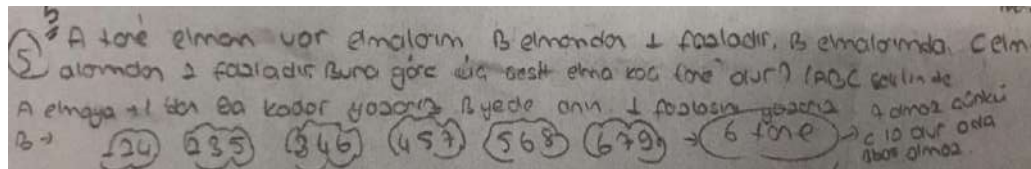 5 A tane elmam var elmalarım B elmamdan 1 fazladır. B elmalarımda C elm
alarımdan 2 fazladır Buna göre üç çeşit elma kaç tane olur? (ABC şeklinde
A elmaya +1 den 6a kadar yazarız B yede onn 1 fazlasını yazarız 7 olmaz çünkü
B → 124 235 346 457 568 679 → 6 tane → C 10 olur oda
olmaz